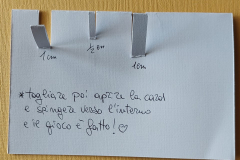 1 cm
1/2 cm
1 cm
*tagliare poi aprire la card
e spingere verso l'interno
e il gioco è fatto! ♡